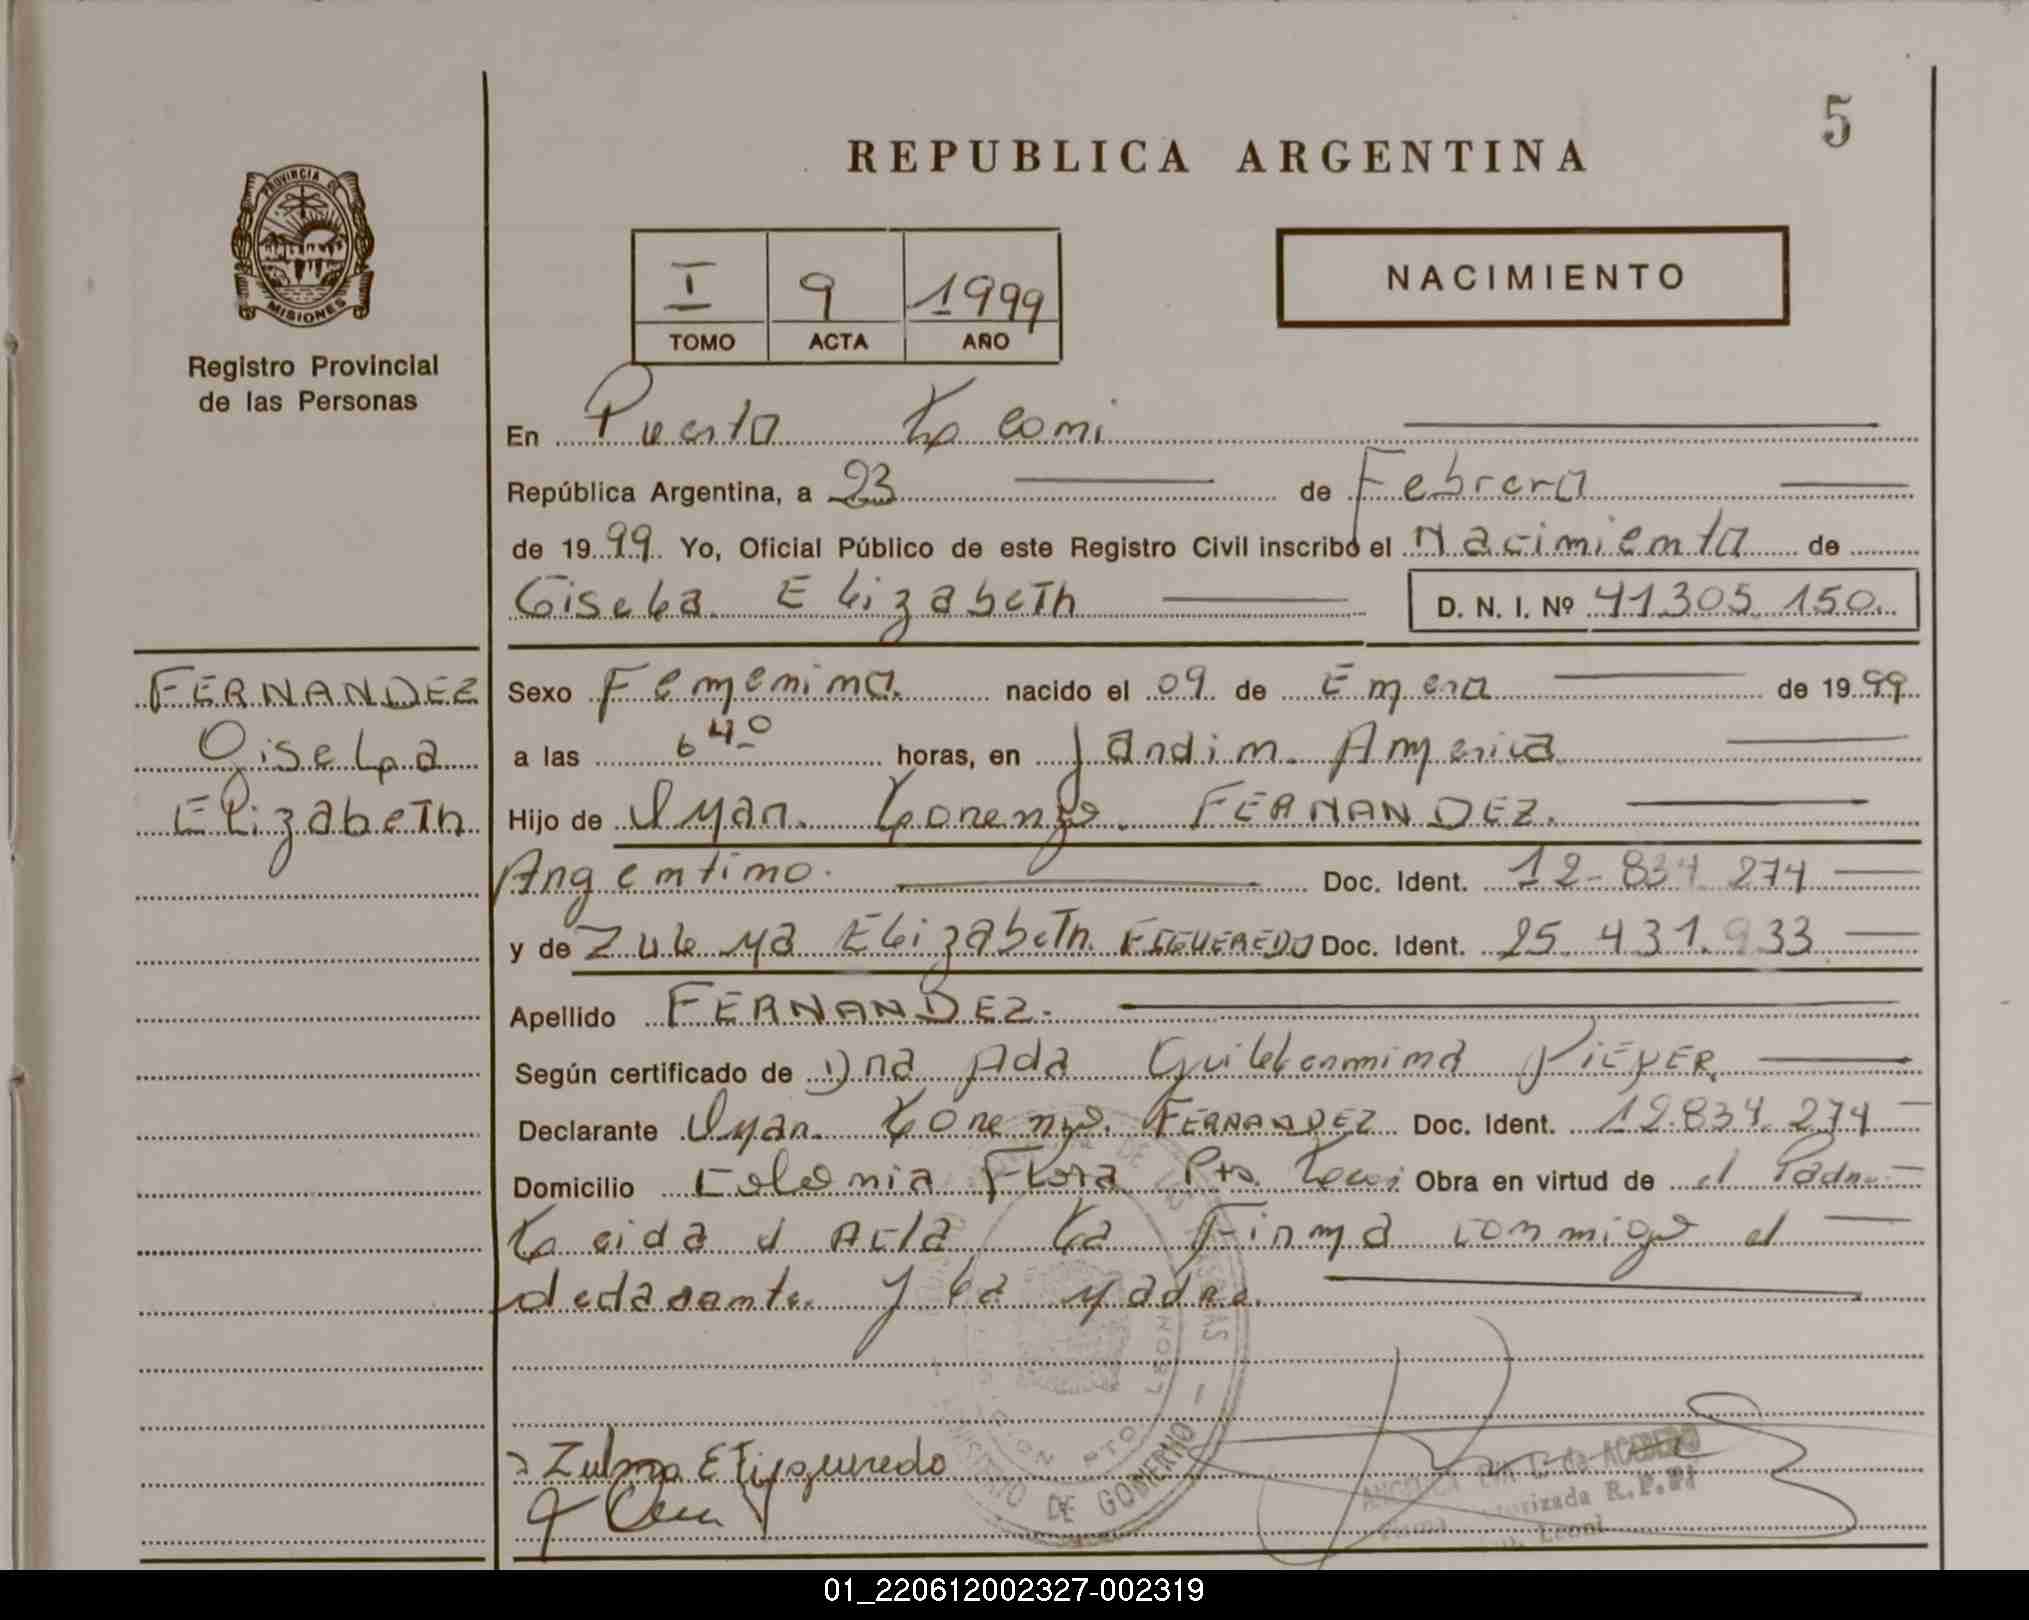 5
REPUBLICA ARGENTINA
PROVINCIA DE
MISIONES
Registro Provincial
de las Personas
I 9 1999
TOMO ACTA AÑO
NACIMIENTO
En Puerto Leoni
República Argentina, a 23 de Febrero
de 1999 Yo, Oficial Público de este Registro Civil inscribo el Nacimiento de
Gisela Elizabeth D. N. I. Nº 41305 150
FERNANDEZ
Gisela
Elizabeth
Sexo Femenino. nacido el 09 de Enero de 1999
a las 6 40 horas, en Jardin America
Hijo de Juan Lorenzo. FERNANDEZ.
Argentino. Doc. Ident. 12-834 274
y de Zulma Elizabeth. FIGUEREDO Doc. Ident. 25 431.933
Apellido FERNANDEZ.
Según certificado de Dra Ada Guillermina
Declarante Juan Lorenzo. FERNANDEZ Doc. Ident. 12.834.274
Domicilio Colonia Flora Pto. Leoni Obra en virtud de el Padre
Leida el Acta, la Firma conmigo el
declarante y la madre.
Zulma E Figueredo
MINISTERIO DE GOBIERNO
ANGELICA de ACEBEDO
Autorizada R.P.P.
Firma
Leoni
01_220612002327-002319